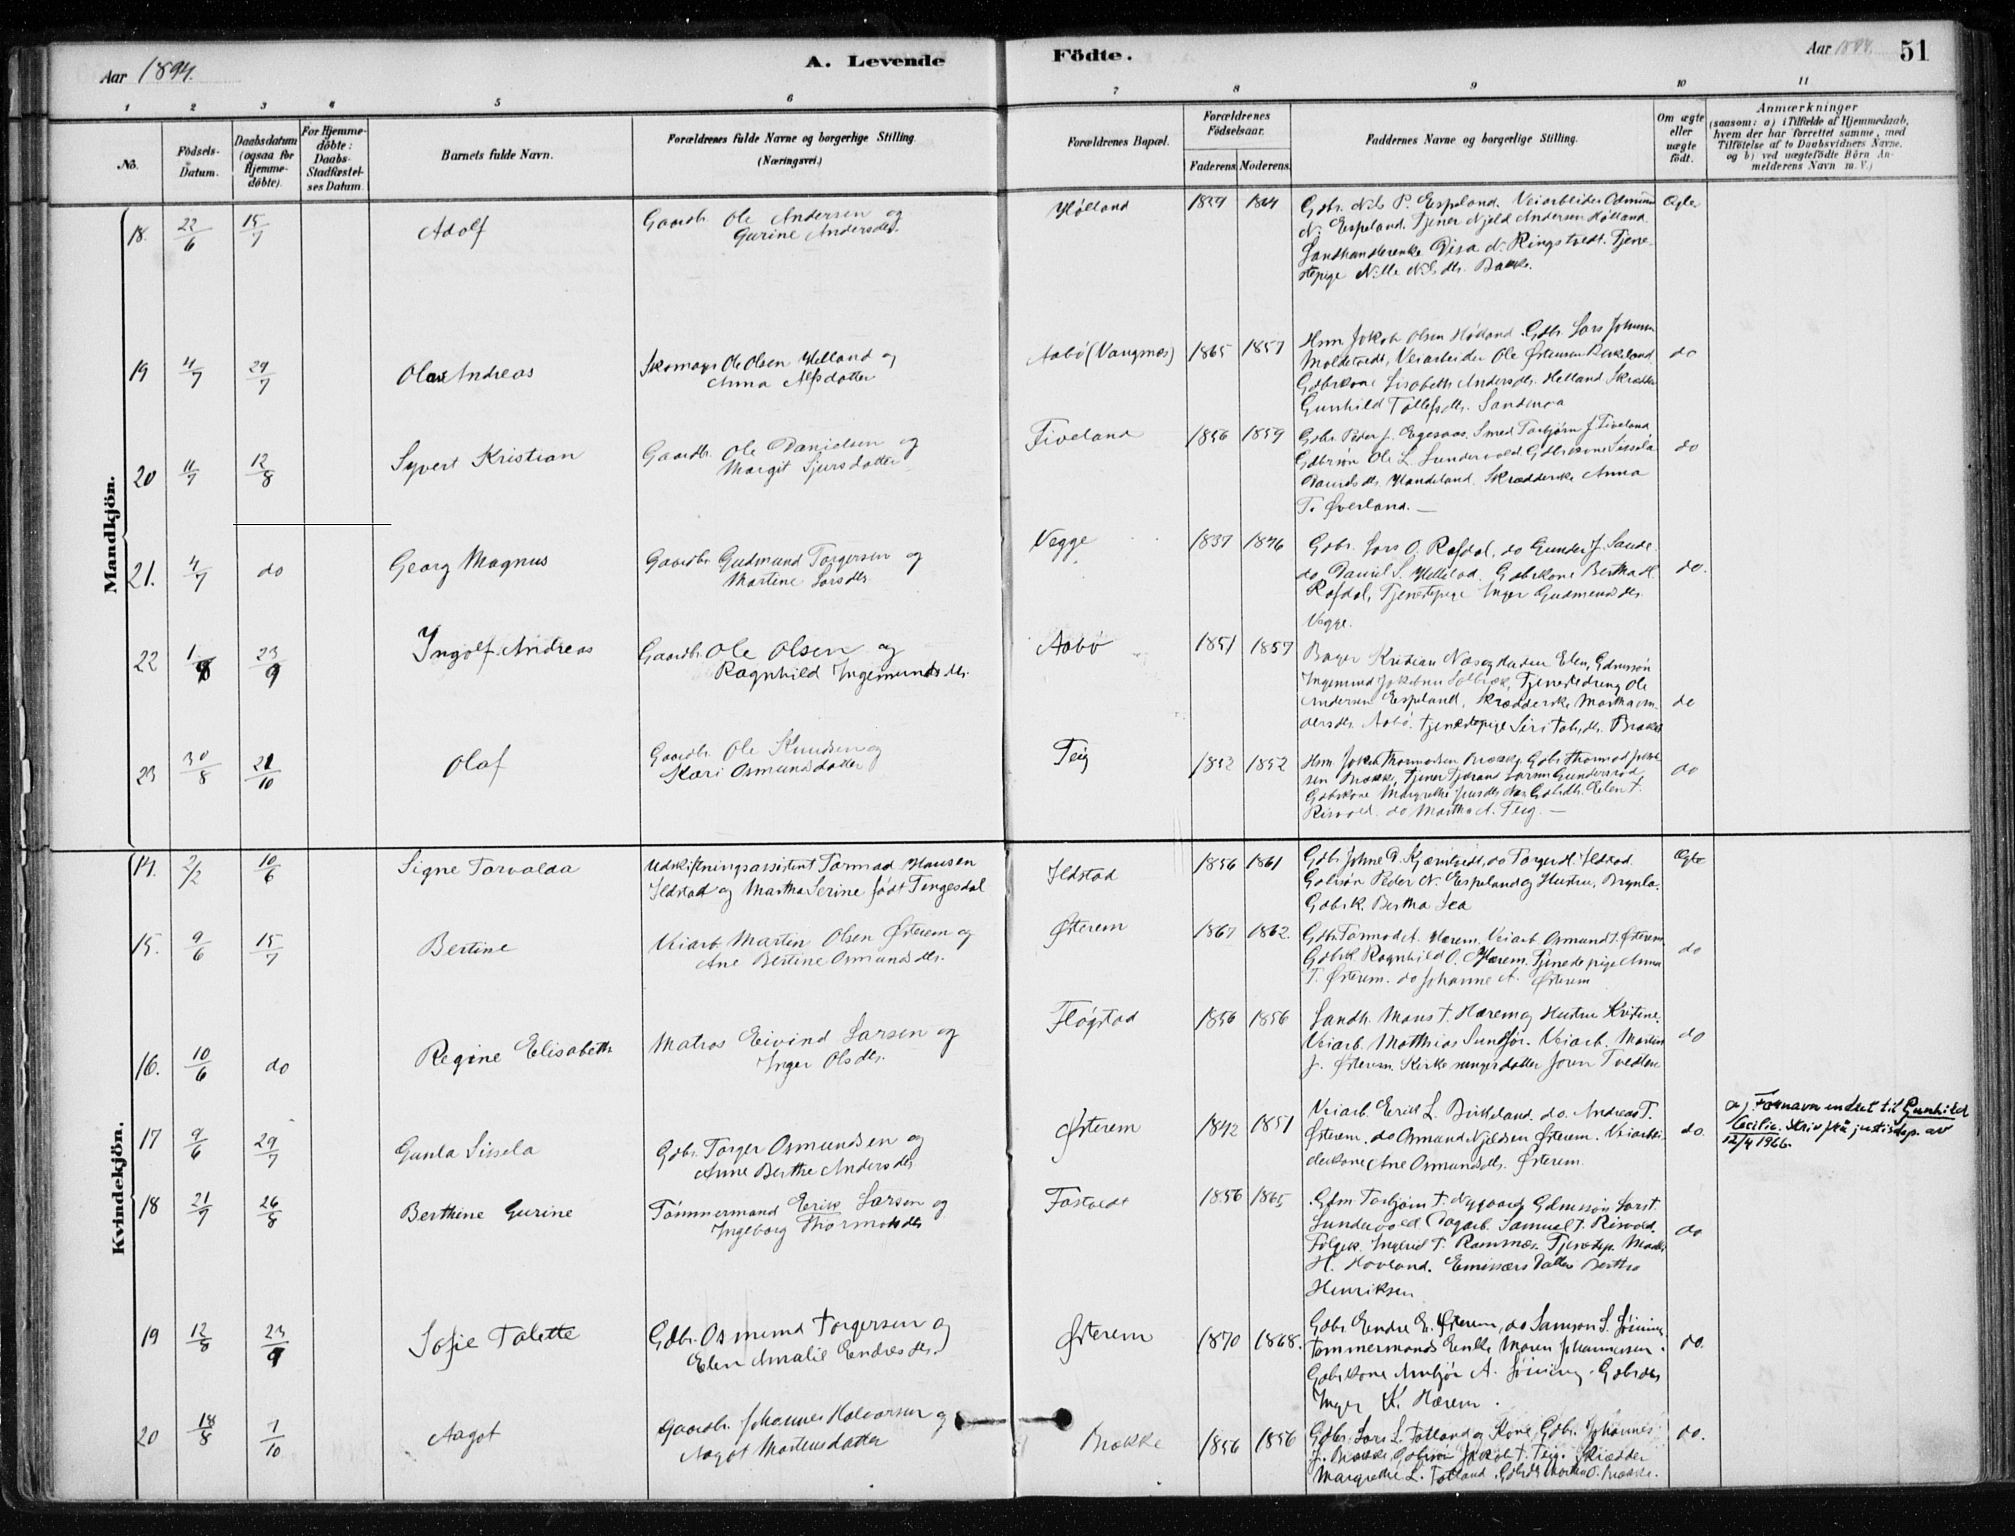 Aar 1894.
A. Levende
Födte.
Aar 1894.
51
1 2 3 4 5 6 7 8 9 10 11
No.
Födsels-
Datum.
Daabsdatum
(ogsaa for
Hjemme-
döbte).
For Hjemme-
döbte:
Daabs-
Stadfæstel-
ses Datum.
Barnets fulde Navn.
Forældrenes fulde Navne og borgerlige Stilling.
(Næringsvei.)
Forældrenes Bopæl.
Forældrenes
Födselsaar.
Faderens. Moderens.
Faddernes Navne og borgerlige Stilling.
Om ægte
eller
uægte
födt.
Anmærkninger
(saasom: a) i Tilfælde af Hjemmedaab,
hvem der har forrettet samme, med
Tilföielse af to Daabsvidners Navne.
og b) ved uægtefödte Börn An-
melderens Navn m. V.)
Mandkjön.
18. 22/6 15/7 Adolf
Gaardbr. Ole Andersen og
Gurine Andersdtr.
Hølland
Gdbr. Nils P. Espeland. Veiarbeider Odmund
N. Espeland. Tjener Njeld Andersen Hølland.
N. Ringstvedt. Tjene-
stepige Nilsdtr. Bakke.
Ægte
19 4/7 29/7 Olaf Andreas
Skomager Ole Olsen Helland og
Anna Alfsdatter
Aabø (Vangnes) 1865 1857
Hsm. Jakob Olsen Hølland. Gdbr. Lars Johansen
Moldetvedt, Veiarbeider Ole Østensen Birkeland
Gdbrkone Lisabeth Andersdtr. Helland
Gunhild Tollefsdtr. Sandmoa
do
20 11/7 12/8 Syvert Kristian
Gaardbr. Ole Danielsen og
Margit Sjursdatter
Fiveland 1856 1859
Gdbr. Peder J. Egesaas. Smed Torbjørn J. Fiveland
Gdbrsøn Ole L. Sundervold Gdbrkone Sissela
Davidsdtr. Handeland. Skrædderske Anna
T. Øverland. —
do
21. 4/7 do Georg Magnus
Gaardbr. Gudmund Torgersen og
Martine Larsdtr
Vegge 1837 1846
Gdbr. Lars O. Rafdal, do Gunder J. Sande.
do Daniel S. Hellestad. Gdbrkone Bertha H.
Rafdal, Tjenestepige Inger Gudmundsdtr.
Vegge.
do.
22 1/8 23/9 Ingolf Andreas
Gaardbr. Ole Olsen og
Ragnhild Ingemundsdtr.
Aabø 1851 1857
Bager Kristian Næs og Elen, Gdmssøn
Ingemund Jakobsen Solbræk, Tjenestedreng Ole
Andersen Espeland, Skrædderske Martha
Aabø. Tjenestepige Siri Brække
do
23 30/8 21/10 Olaf
Gaardbr. Ole Knudsen og
Kari Osmundsdatter
Teig 1852 1852
Hsm. Jakob Thormodsen Brække Gdbr. Thormod
Brække Tjener Larsen Gunderstad
Gdbrkone Margrethe Gdbrdtr. Elen T.
Risvold. do Martha A. Teig. —
do
Kvindekjön.
14. 2/2 10/6 Signe Torvalda
Udskiftningsassistent Tormod Hansen
Ilstad og Martha Serine født Tengesdal
Ilstad 1856 1861
Gdbr. Johne D. Kjærilvedt, do Torger H. Ilstad.
Gdbrsøn Peder N. Espeland og Hustru, Brynla.
Gdbrk. Bertha Lea
Ægte
15. 9/6 15/7 Bertine
Veiarb. Martin Olsen Østerem og
Ane Bertine Osmundsdtr.
Østerem 1867 1862.
Gdbr. Tormod A. Hærem. Veiarb. Osmund T. Østerem
Gdbrk Ragnhild O. Hærem. Tjenestepige Anna
T. Østerem. do Johanne A. Østerem
do
16. 10/6 do Regine Elisabeth
Matros Eivind Larsen og
Inger Olsdtr.
Fløgstad 1856 1856
Landh. Mons T. Hærem og Hustru Kristine.
Veiarb. Matthias Sundfør. Veiarb. Martin
J. Østerem. Kirkesangerdatter Tvedten
do
17 9/6 29/7 Gunla Sissela
Gdbr. Torger Osmundsen og
Anne Berthe Andersdtr
Østerem 1842 1851
Veiarb. Erik L. Birkeland. do. Andreas T.
Østerem. do Osmund Njeldsen Østerem. Veiarbei-
derkone Ane Osmundsdtr. Østerem.
do.
a) Fornavn endret til Gunhild
Cecilie. skriv frå justisdep. av
12/4 1966.
18 21/7 26/8 Berthine Gurine
Tømmermand Erik Larsen og
Ingeborg Thormodsdtr
Fastvedt 1856 1865
Gdm Torbjørn T. Nygaard Gdmssøn Lars T.
Sundervold. Dagarb. Samuel T. Risvold.
Følgek. Ingerid T. Ramnæs. Tjenestep.
H. Hovland. Emissærs Datter Berthe
Henriksen
do
19 12/8 23/9 Sofie Talette
Gdbr. Osmund Torgersen og
Elen Amalie Endresdtr.
Østerem 1870 1868.
Gdbr. Endre E. Østerem, do Samson S.
Tømmermands Enke Maren Johannessen
Gdbrkone A. Gdbrdtr
Inger K. Hærem.
do.
20 18/8 7/10 Aagot
Gaardbr. Johannes Halvorsen og
Aagot Mortensdatter
Brække 1856 1856
Gdbr. Lars L. Fatland og Kone, Gdbr. Johannes
J. Brække, Gdbrsøn Jakob T. Teig. Skrædder
Margrethe L. Fatland. Gdbrdtr Martha O. Brække.
do.